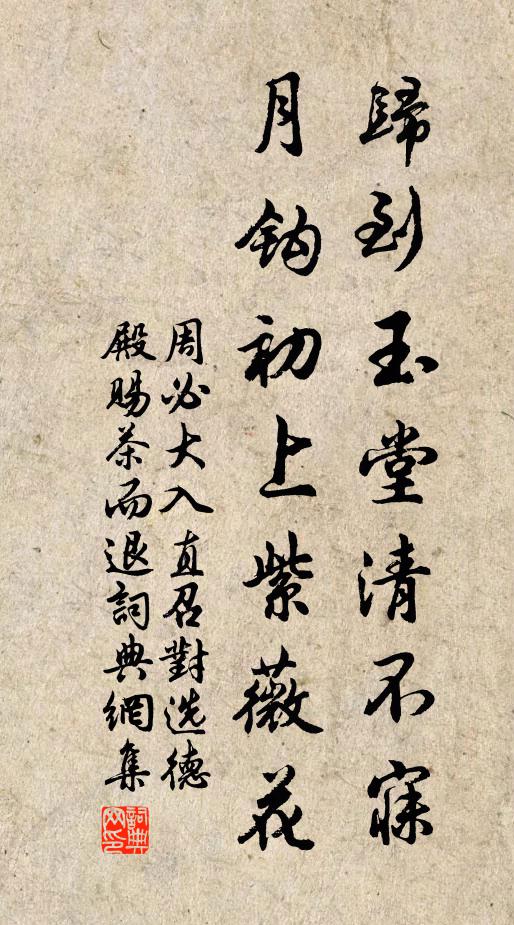 歸到玉堂清不寐
月鈎初上紫薇花
周必大入直召對选德
殿賜茶而退詞典網集
詞典
网印